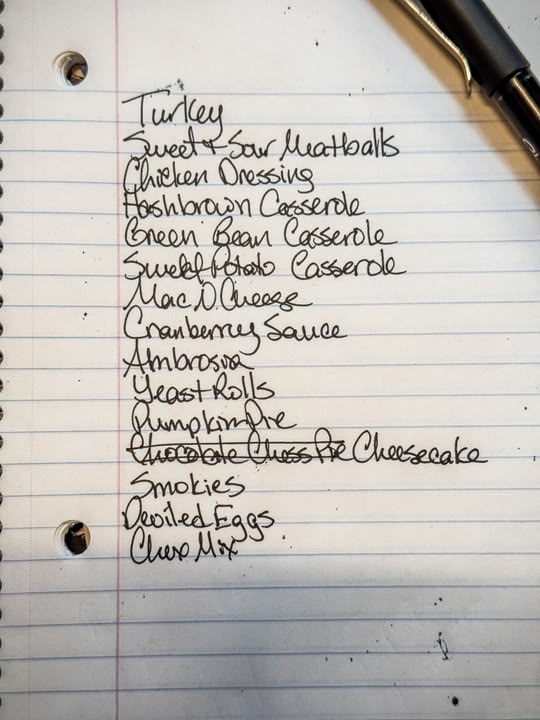 Turkey
Sweet & Sour Meatballs
Chicken Dressing
Hashbrown Casserole
Green Bean Casserole
Sweet Potato Casserole
Mac N Cheese
Cranberry Sauce
Ambrosia
Yeast Rolls
Pumpkin Pie
Chocolate Chess Pie Cheesecake
Smokies
Deviled Eggs
Chex Mix